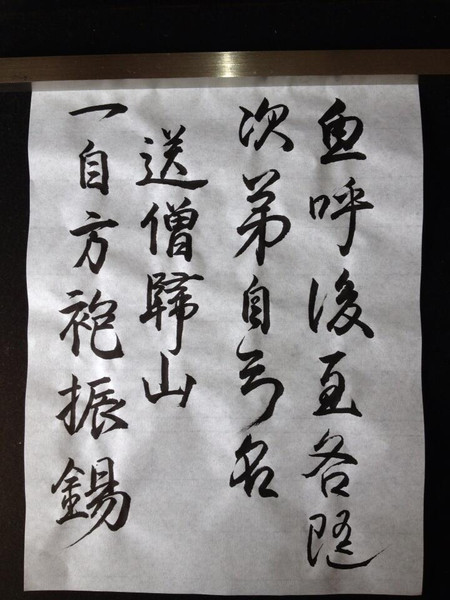 魚呼後至各隨
次第自名
送僧歸山
一自方袍振錫